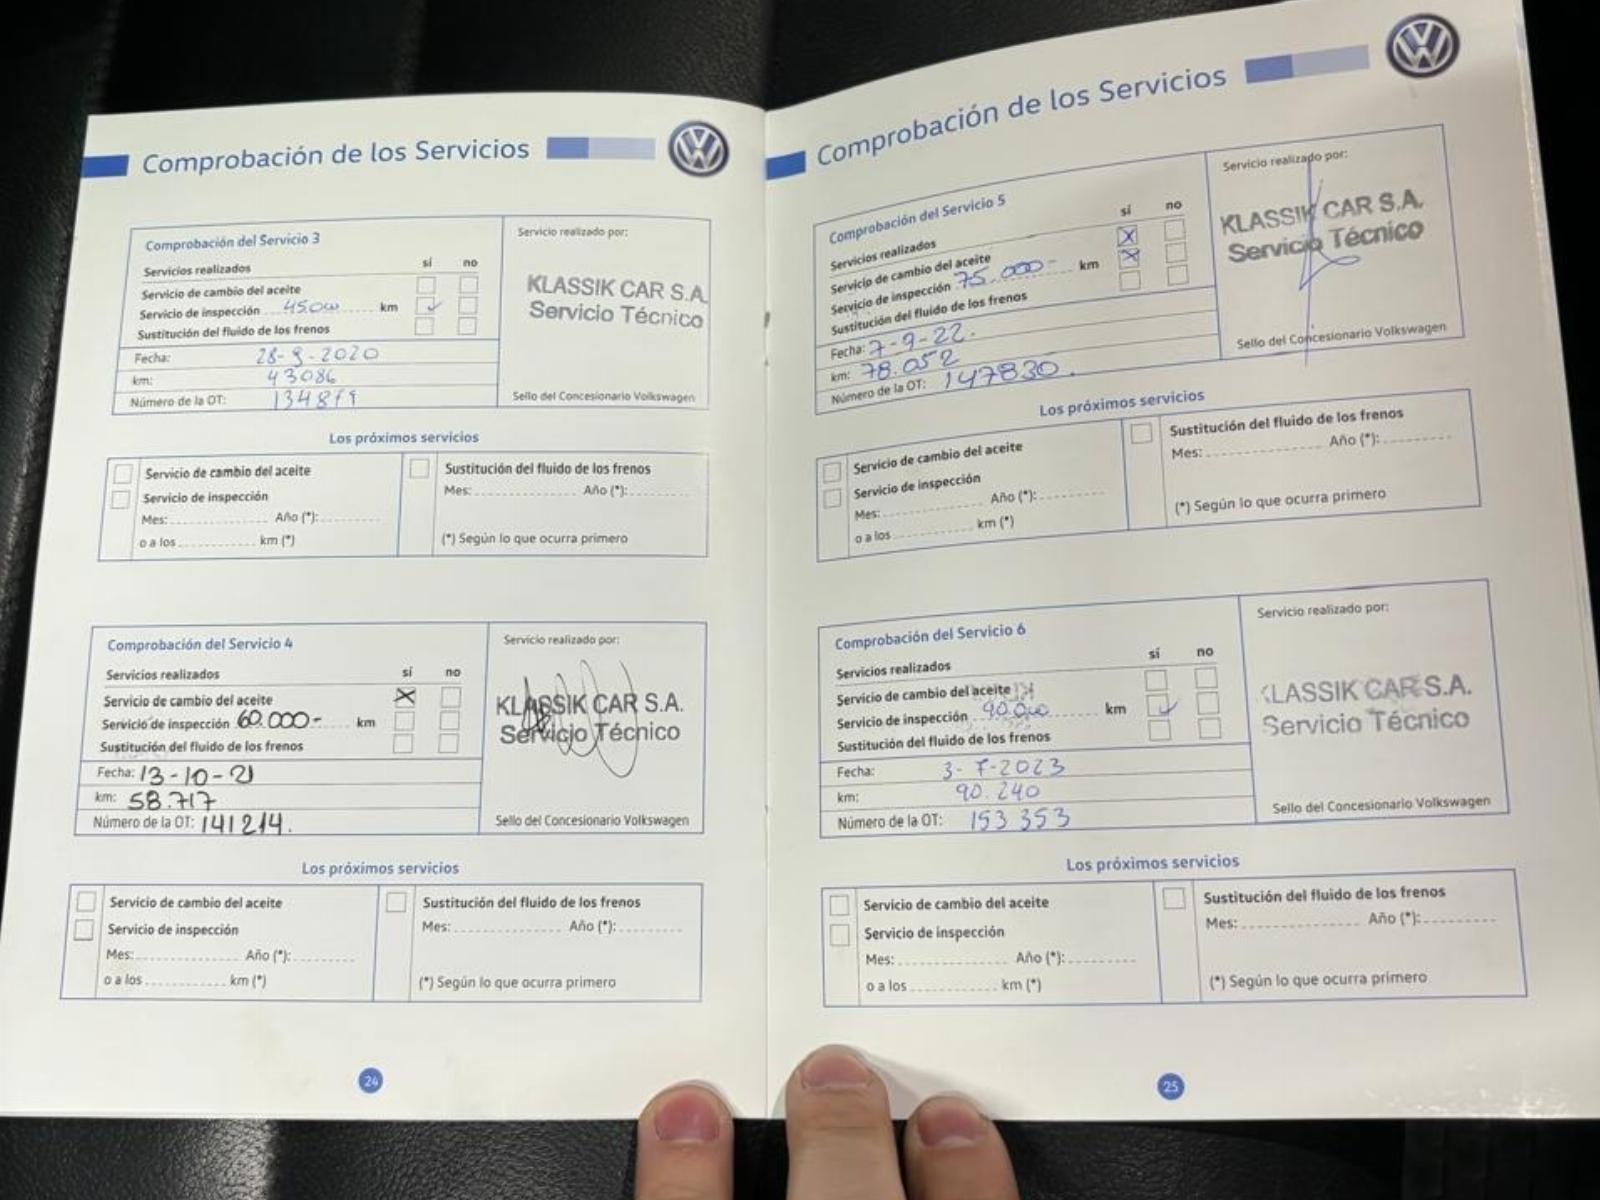 Comprobación de los Servicios
Comprobación del Servicio 3
Servicios realizados
sí no
Servicio de cambio del aceite
Servicio de inspección 45000 km
Sustitución del fluido de los frenos
Fecha: 28-9-2020
km: 43086
Número de la OT:
Servicio realizado por:
KLASSIK CAR S.A.
Servicio Técnico
Sello del Concesionario Volkswagen
Los próximos servicios
Servicio de cambio del aceite
Servicio de inspección
Mes: Año (*):
o a los km (*)
Sustitución del fluido de los frenos
Mes: Año (*):
(*) Según lo que ocurra primero
Comprobación del Servicio 4
Servicios realizados
sí no
Servicio de cambio del aceite
Servicio de inspección 60.000- km
Sustitución del fluido de los frenos
Fecha: 13-10-21
km: 58.717
Número de la OT: 141214.
Servicio realizado por:
KLASSIK CAR S.A.
Servicio Técnico
Sello del Concesionario Volkswagen
Los próximos servicios
Servicio de cambio del aceite
Servicio de inspección
Mes: Año (*):
o a los km (*)
Sustitución del fluido de los frenos
Mes: Año (*):
(*) Según lo que ocurra primero
24
Comprobación de los Servicios
Comprobación del Servicio 5
Servicios realizados
sí no
Servicio de cambio del aceite
Servicio de inspección 75.000- km
Sustitución del fluido de los frenos
Fecha: 7-9-22.
km: 78.052
Número de la OT: 147830.
Servicio realizado por:
KLASSIK CAR S.A.
Servicio Técnico
Sello del Concesionario Volkswagen
Los próximos servicios
Servicio de cambio del aceite
Servicio de inspección
Mes: Año (*):
o a los km (*)
Sustitución del fluido de los frenos
Mes: Año (*):
(*) Según lo que ocurra primero
Comprobación del Servicio 6
Servicios realizados
sí no
Servicio de cambio del aceite
Servicio de inspección 90.000 km
Sustitución del fluido de los frenos
Fecha: 3-7-2023
km: 90.240
Número de la OT: 153353
Servicio realizado por:
KLASSIK CAR S.A.
Servicio Técnico
Sello del Concesionario Volkswagen
Los próximos servicios
Servicio de cambio del aceite
Servicio de inspección
Mes: Año (*):
o a los km (*)
Sustitución del fluido de los frenos
Mes: Año (*):
(*) Según lo que ocurra primero
25